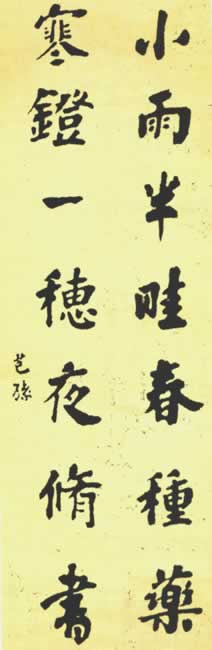 小雨半畦春種藥
寒鐙一穗夜脩書
芑孫